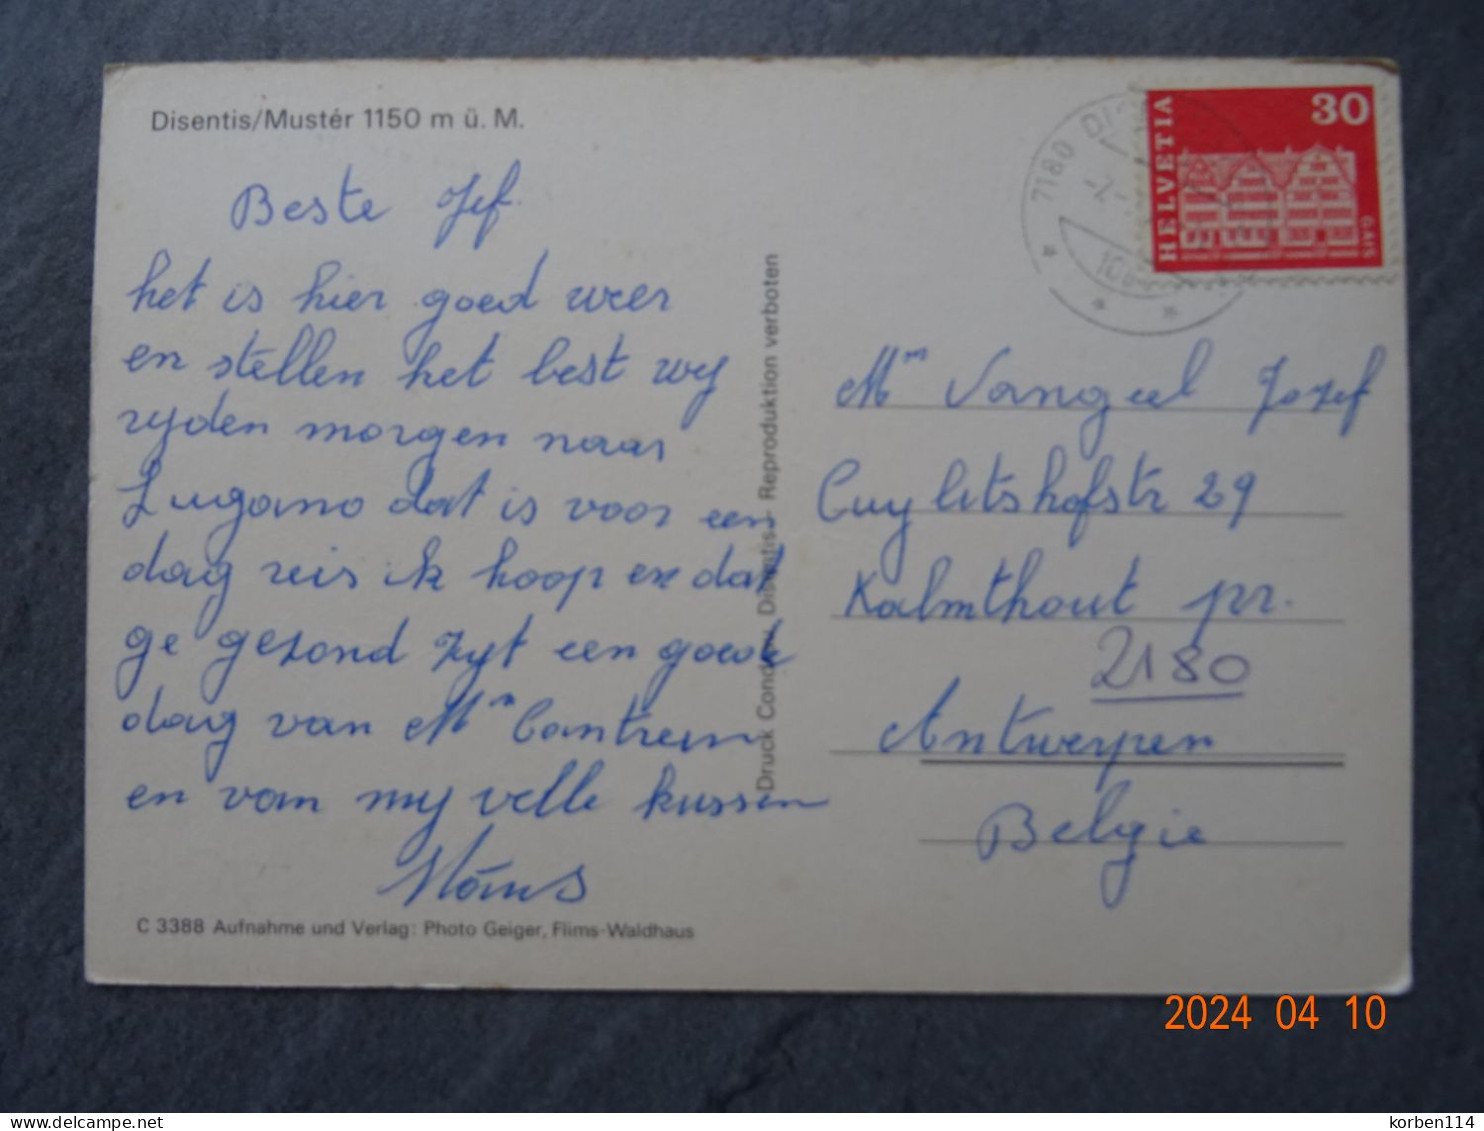 Disentis/Mustér 1150 m ü. M.
Beste Jef
het is hier goed weer
en stellen het best wy
ryden morgen naar
Lugano dat is voor een
dag reis ik hoop ex dat
ge gezond zyt een goede
dag van Mm
en van my velle kussen
C 3388 Aufnahme und Verlag: Photo Geiger, Flims-Waldhaus
Druck Condrau Disentis – Reproduktion verboten
7180 DIS
HELVETIA
30
GAIS
Mm Vangeel Jozef
Cuylitshofstr 29
Kalmthout pr.
2180
Antwerpen
Belgie
2024 04 10
korben114